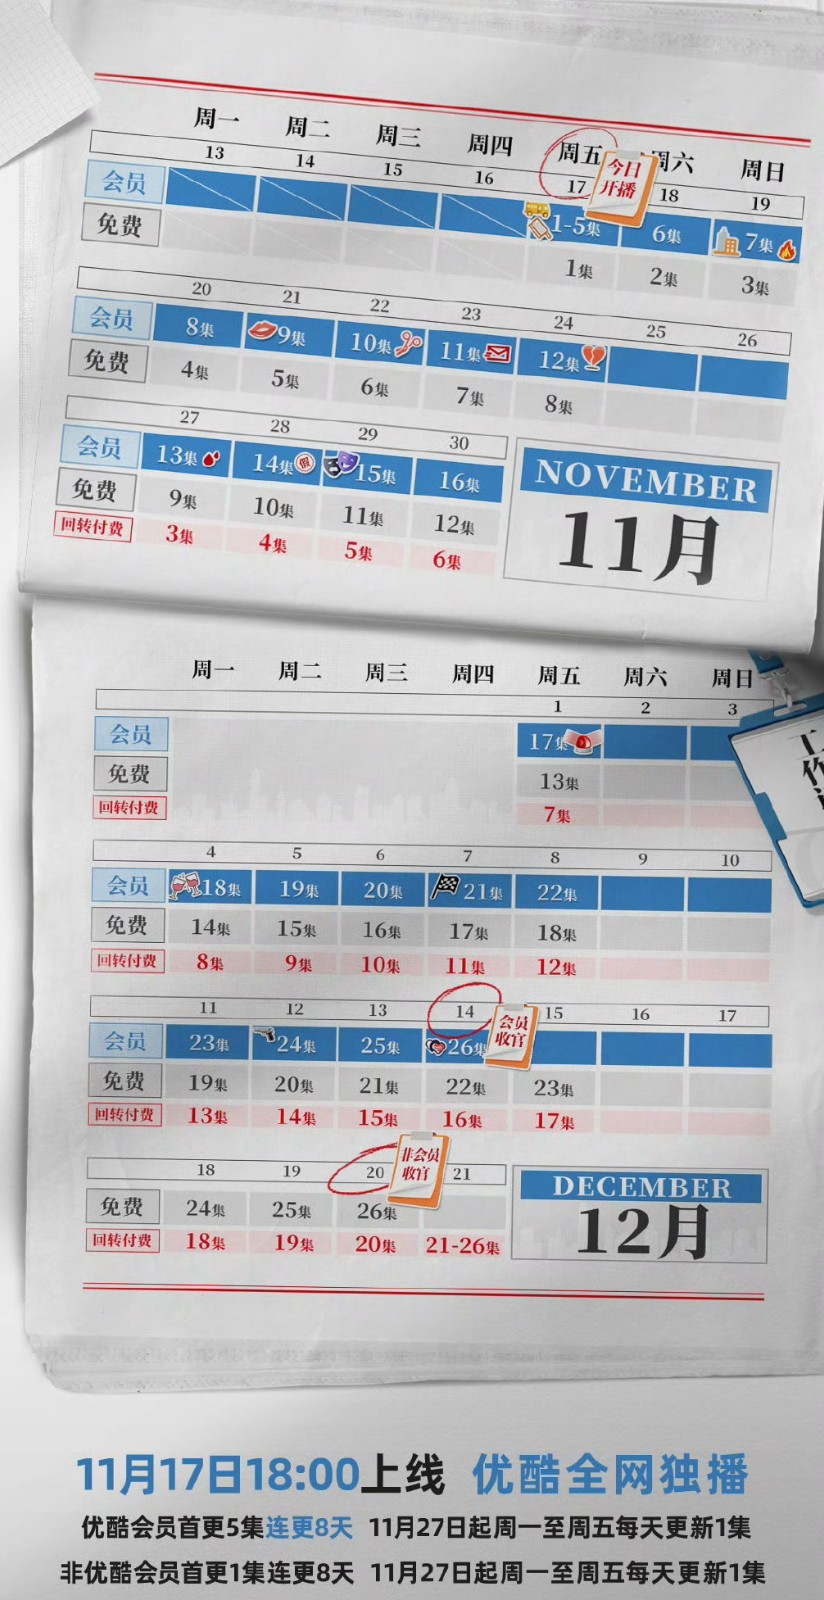 周一 周二 周三 周四 周五 周六 周日
今日
开播
13 14 15 16 17 18 19
会员 1-5集 6集 7集
免费 1集 2集 3集
20 21 22 23 24 25 26
会员 8集 9集 10集 11集 12集
免费 4集 5集 6集 7集 8集
27 28 29 30
会员 13集 14集 假 15集 16集
免费 9集 10集 11集 12集
回转付费 3集 4集 5集 6集
NOVEMBER
11月
周一 周二 周三 周四 周五 周六 周日
1 2 3
会员 17集
免费 13集
回转付费 7集
工作
4 5 6 7 8 9 10
会员 18集 19集 20集 21集 22集
免费 14集 15集 16集 17集 18集
回转付费 8集 9集 10集 11集 12集
11 12 13 14 15 16 17
会员
收官
会员 23集 24集 25集 26集
免费 19集 20集 21集 22集 23集
回转付费 13集 14集 15集 16集 17集
非会员
收官
18 19 20 21
免费 24集 25集 26集
回转付费 18集 19集 20集 21-26集
DECEMBER
12月
11月17日18:00上线 优酷全网独播
优酷会员首更5集连更8天 11月27日起周一至周五每天更新1集
非优酷会员首更1集连更8天 11月27日起周一至周五每天更新1集